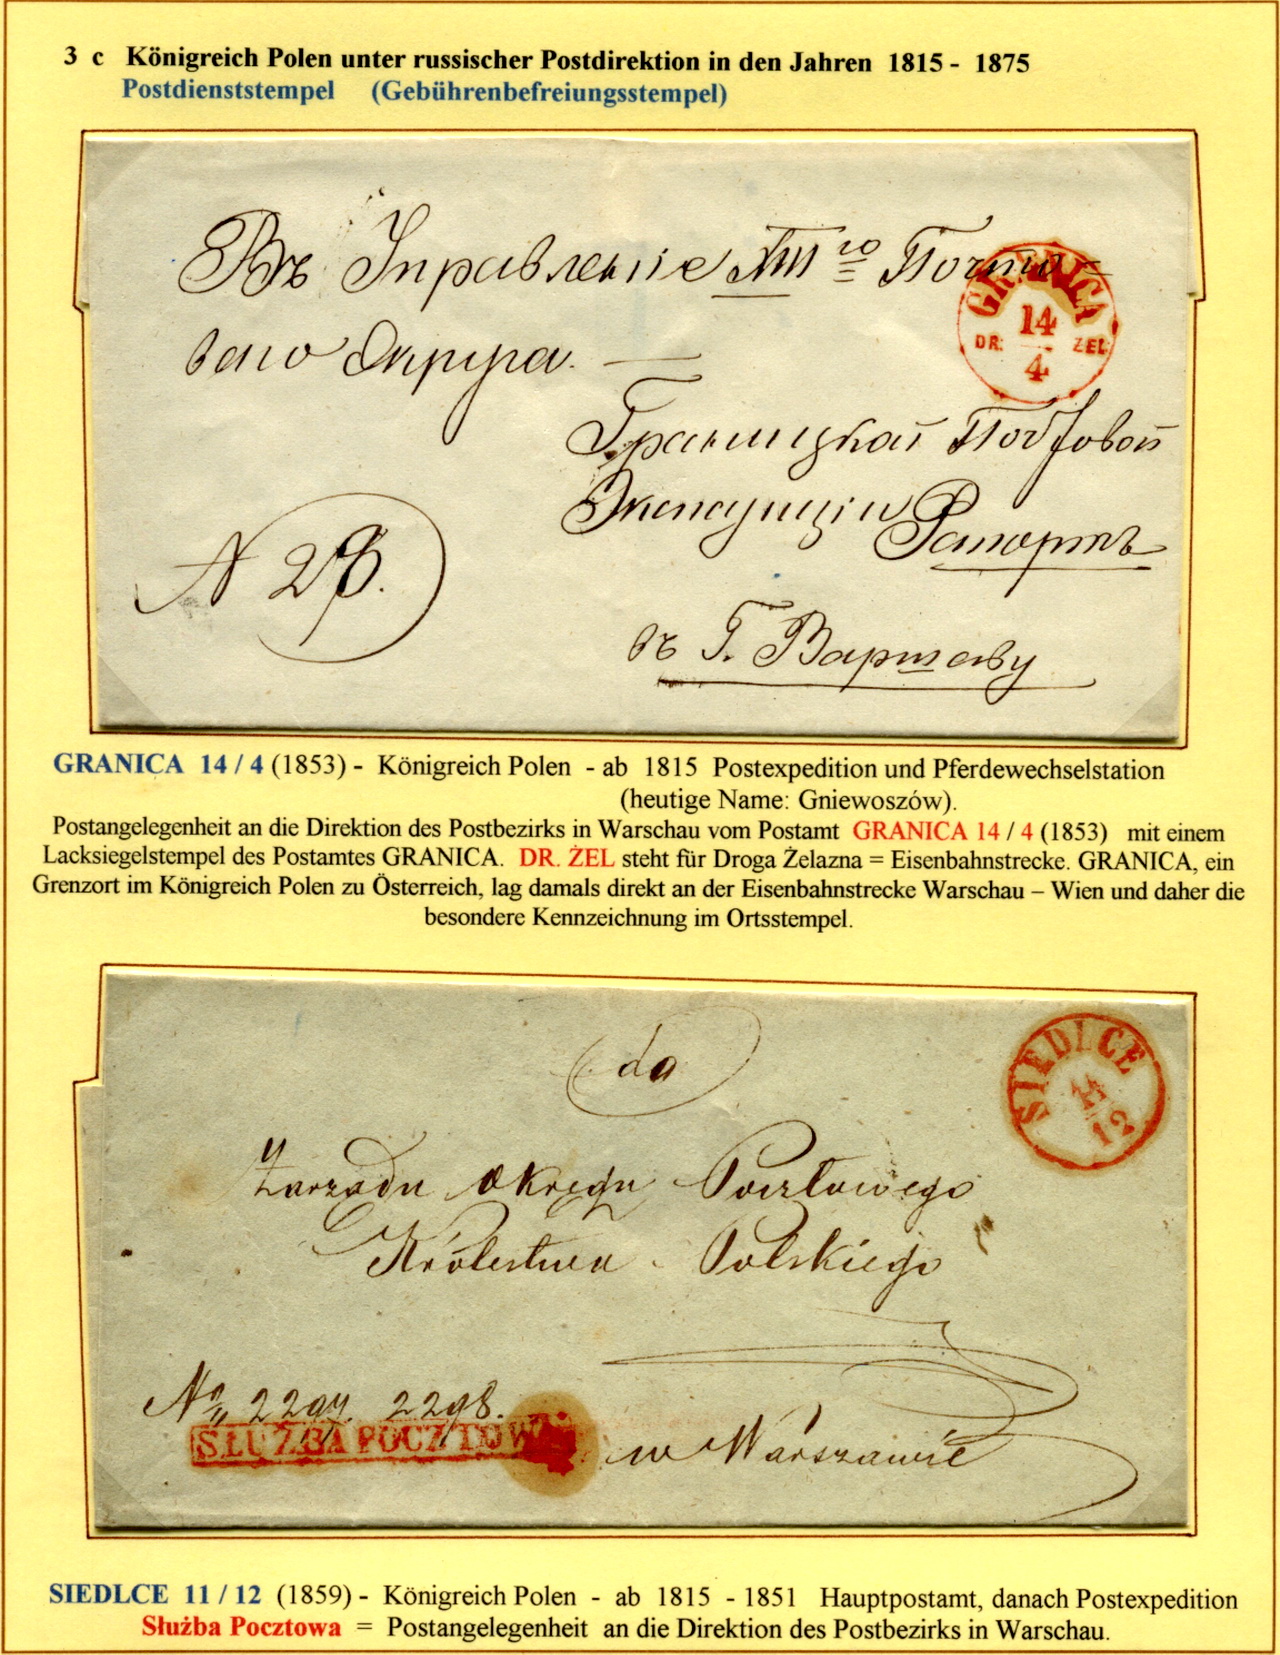 3 c Königreich Polen unter russischer Postdirektion in den Jahren 1815 - 1875
Postdienststempel (Gebührenbefreiungsstempel)
Въ Управленіе XIII го Почто=
ваго Округа. —
GRANICA
14
DR. ZEL.
4
Границкой Почтовой
Экспедиціи Рапортъ
N 28.
въ Г. Варшаву
GRANICA 14 / 4 (1853) - Königreich Polen - ab 1815 Postexpedition und Pferdewechselstation
(heutige Name: Gniewoszów).
Postangelegenheit an die Direktion des Postbezirks in Warschau vom Postamt GRANICA 14 / 4 (1853) mit einem
Lacksiegelstempel des Postamtes GRANICA. DR. ŻEL steht für Droga Żelazna = Eisenbahnstrecke. GRANICA, ein
Grenzort im Königreich Polen zu Österreich, lag damals direkt an der Eisenbahnstrecke Warschau – Wien und daher die
besondere Kennzeichnung im Ortsstempel.
do
SIEDLCE
11
12
Zarządu Okręgu Pocztowego
Królestwa Polskiego
2298.
SŁUŻBA POCZTOW
w Warszawie
SIEDLCE 11 / 12 (1859) - Königreich Polen - ab 1815 - 1851 Hauptpostamt, danach Postexpedition
Służba Pocztowa = Postangelegenheit an die Direktion des Postbezirks in Warschau.